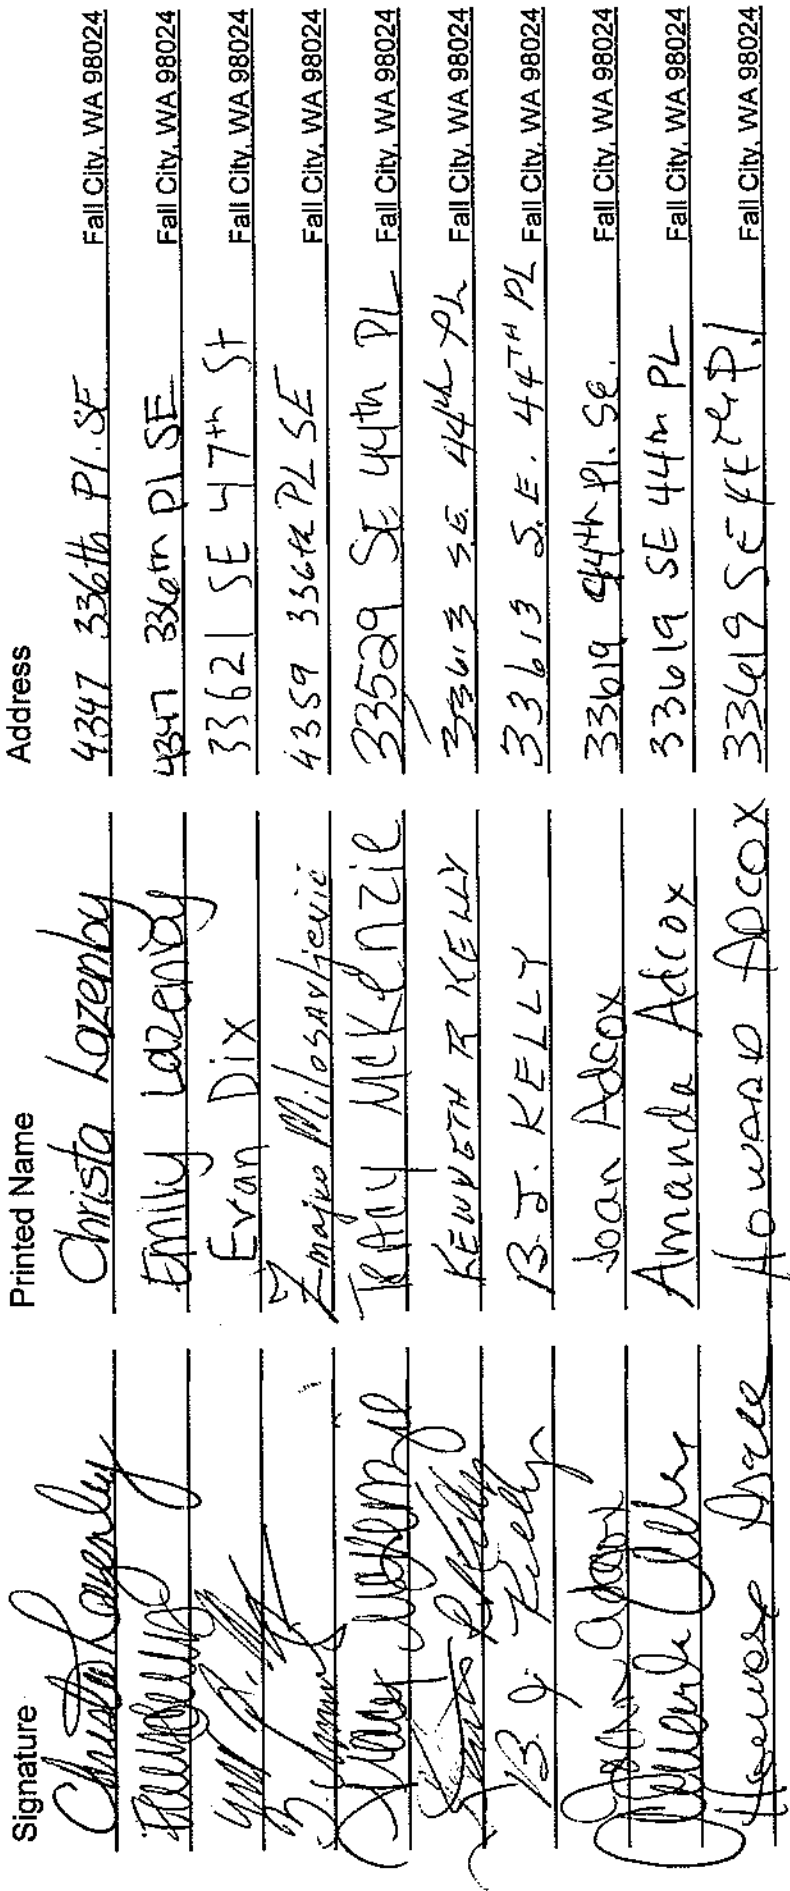 Signature Printed Name Address
Christa Lazenby Christa Lazenby 4347 336th Pl. SE Fall City, WA 98024
Emily Lazenby 4347 336th Pl SE Fall City, WA 98024
Evan Dix 33621 SE 47th St Fall City, WA 98024
Zmajko Milosavljevic 4359 336th PL SE Fall City, WA 98024
Tracy McKenzie Tracy McKenzie 33529 SE 44th PL Fall City, WA 98024
KENNETH R KELLY 33613 SE 44th PL Fall City, WA 98024
B. J. Kelly B. J. KELLY 33613 S.E. 44TH PL Fall City, WA 98024
Joan Adcox Joan Adcox 33619 44th Pl. Se. Fall City, WA 98024
Amanda Adcox 33619 SE 44th PL Fall City, WA 98024
HOWARD ADCOX 33619 SE 44th Pl Fall City, WA 98024